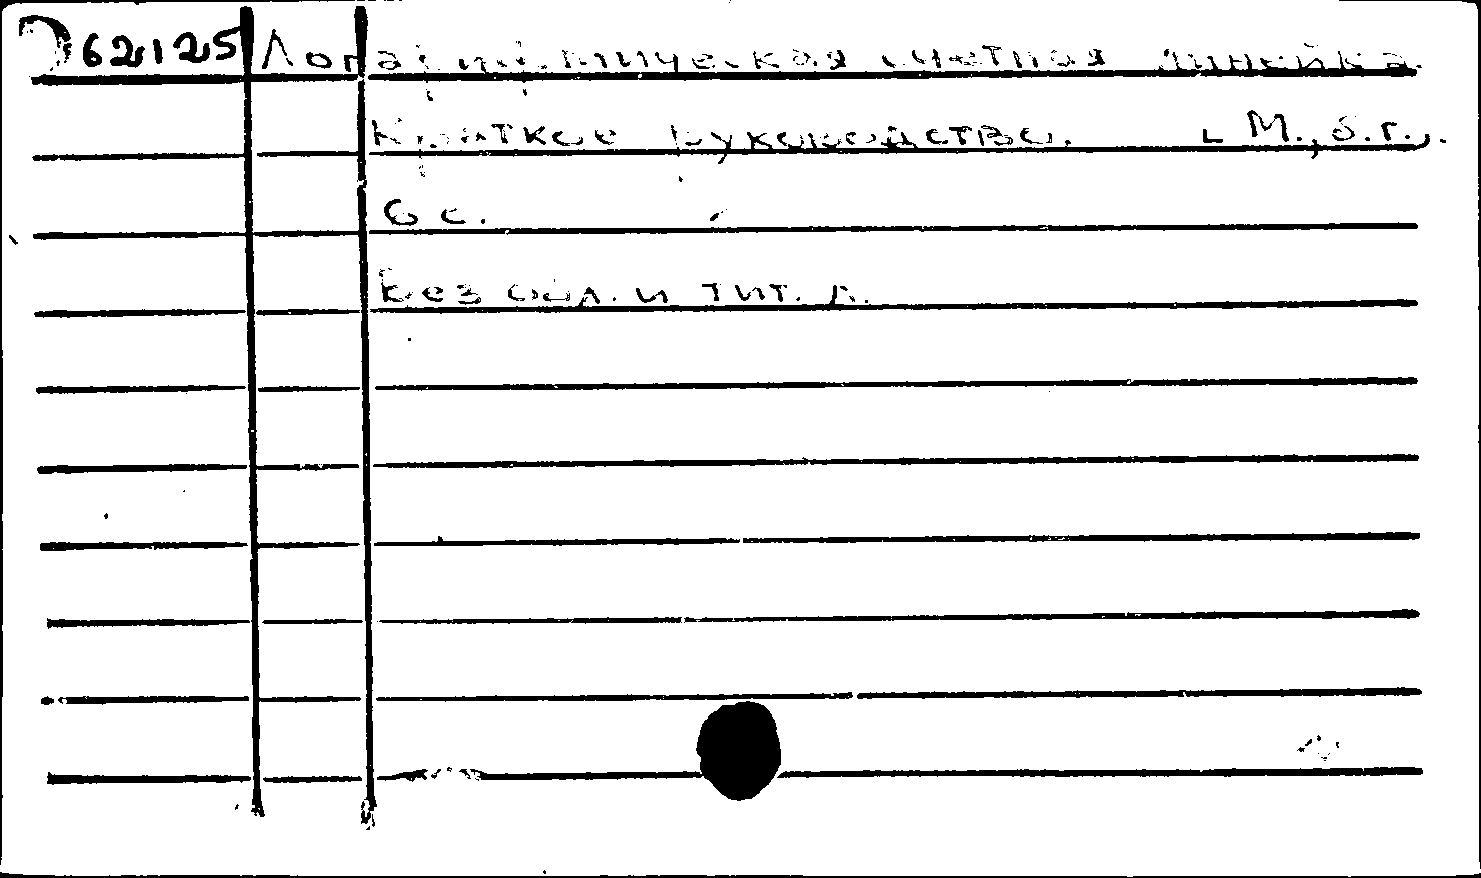 62125 Логарифмическая счетная линейка.
Краткое руководство. М., б.г.,
6 с.
Без обл. и тит. л.